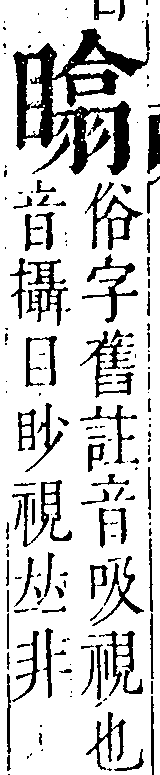 䁯
俗字舊註音吸視也
音攝目眇視𠀤非